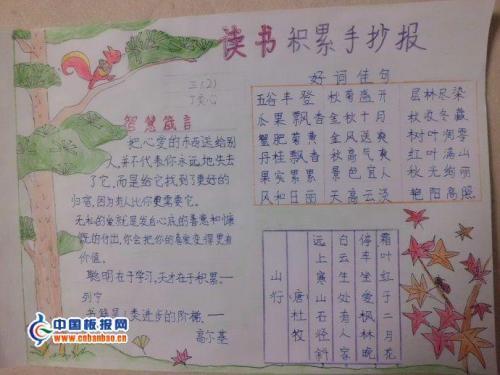 读书积累手抄报
三(2)
丁文心
智慧箴言
把心爱的东西送给别
人,并不代表你永远地失去
了它,而是给它找到了更好的
归宿,因为别人比你更需要它。
无私的爱就是发自心底的善意和慷
慨的付出,你会把你的喜爱变得更有
价值。
聪明在于学习,天才在于积累。—
列宁
书籍是人类进步的阶梯。—
高尔基
好词佳句
五谷丰登 秋菊盛开 层林尽染
瓜果飘香 金秋十月 秋收冬藏
蟹肥菊黄 金风送爽 树叶凋零
丹桂飘香 秋高气爽 红叶满山
果实累累 景色宜人 秋无绚丽
风和日丽 天高云淡 艳阳高照
山行
唐 杜牧
远上寒山石径斜
白云生处有人家
停车坐爱枫林晚
霜叶红于二月花
中国板报网
www.cnbanbao.cn